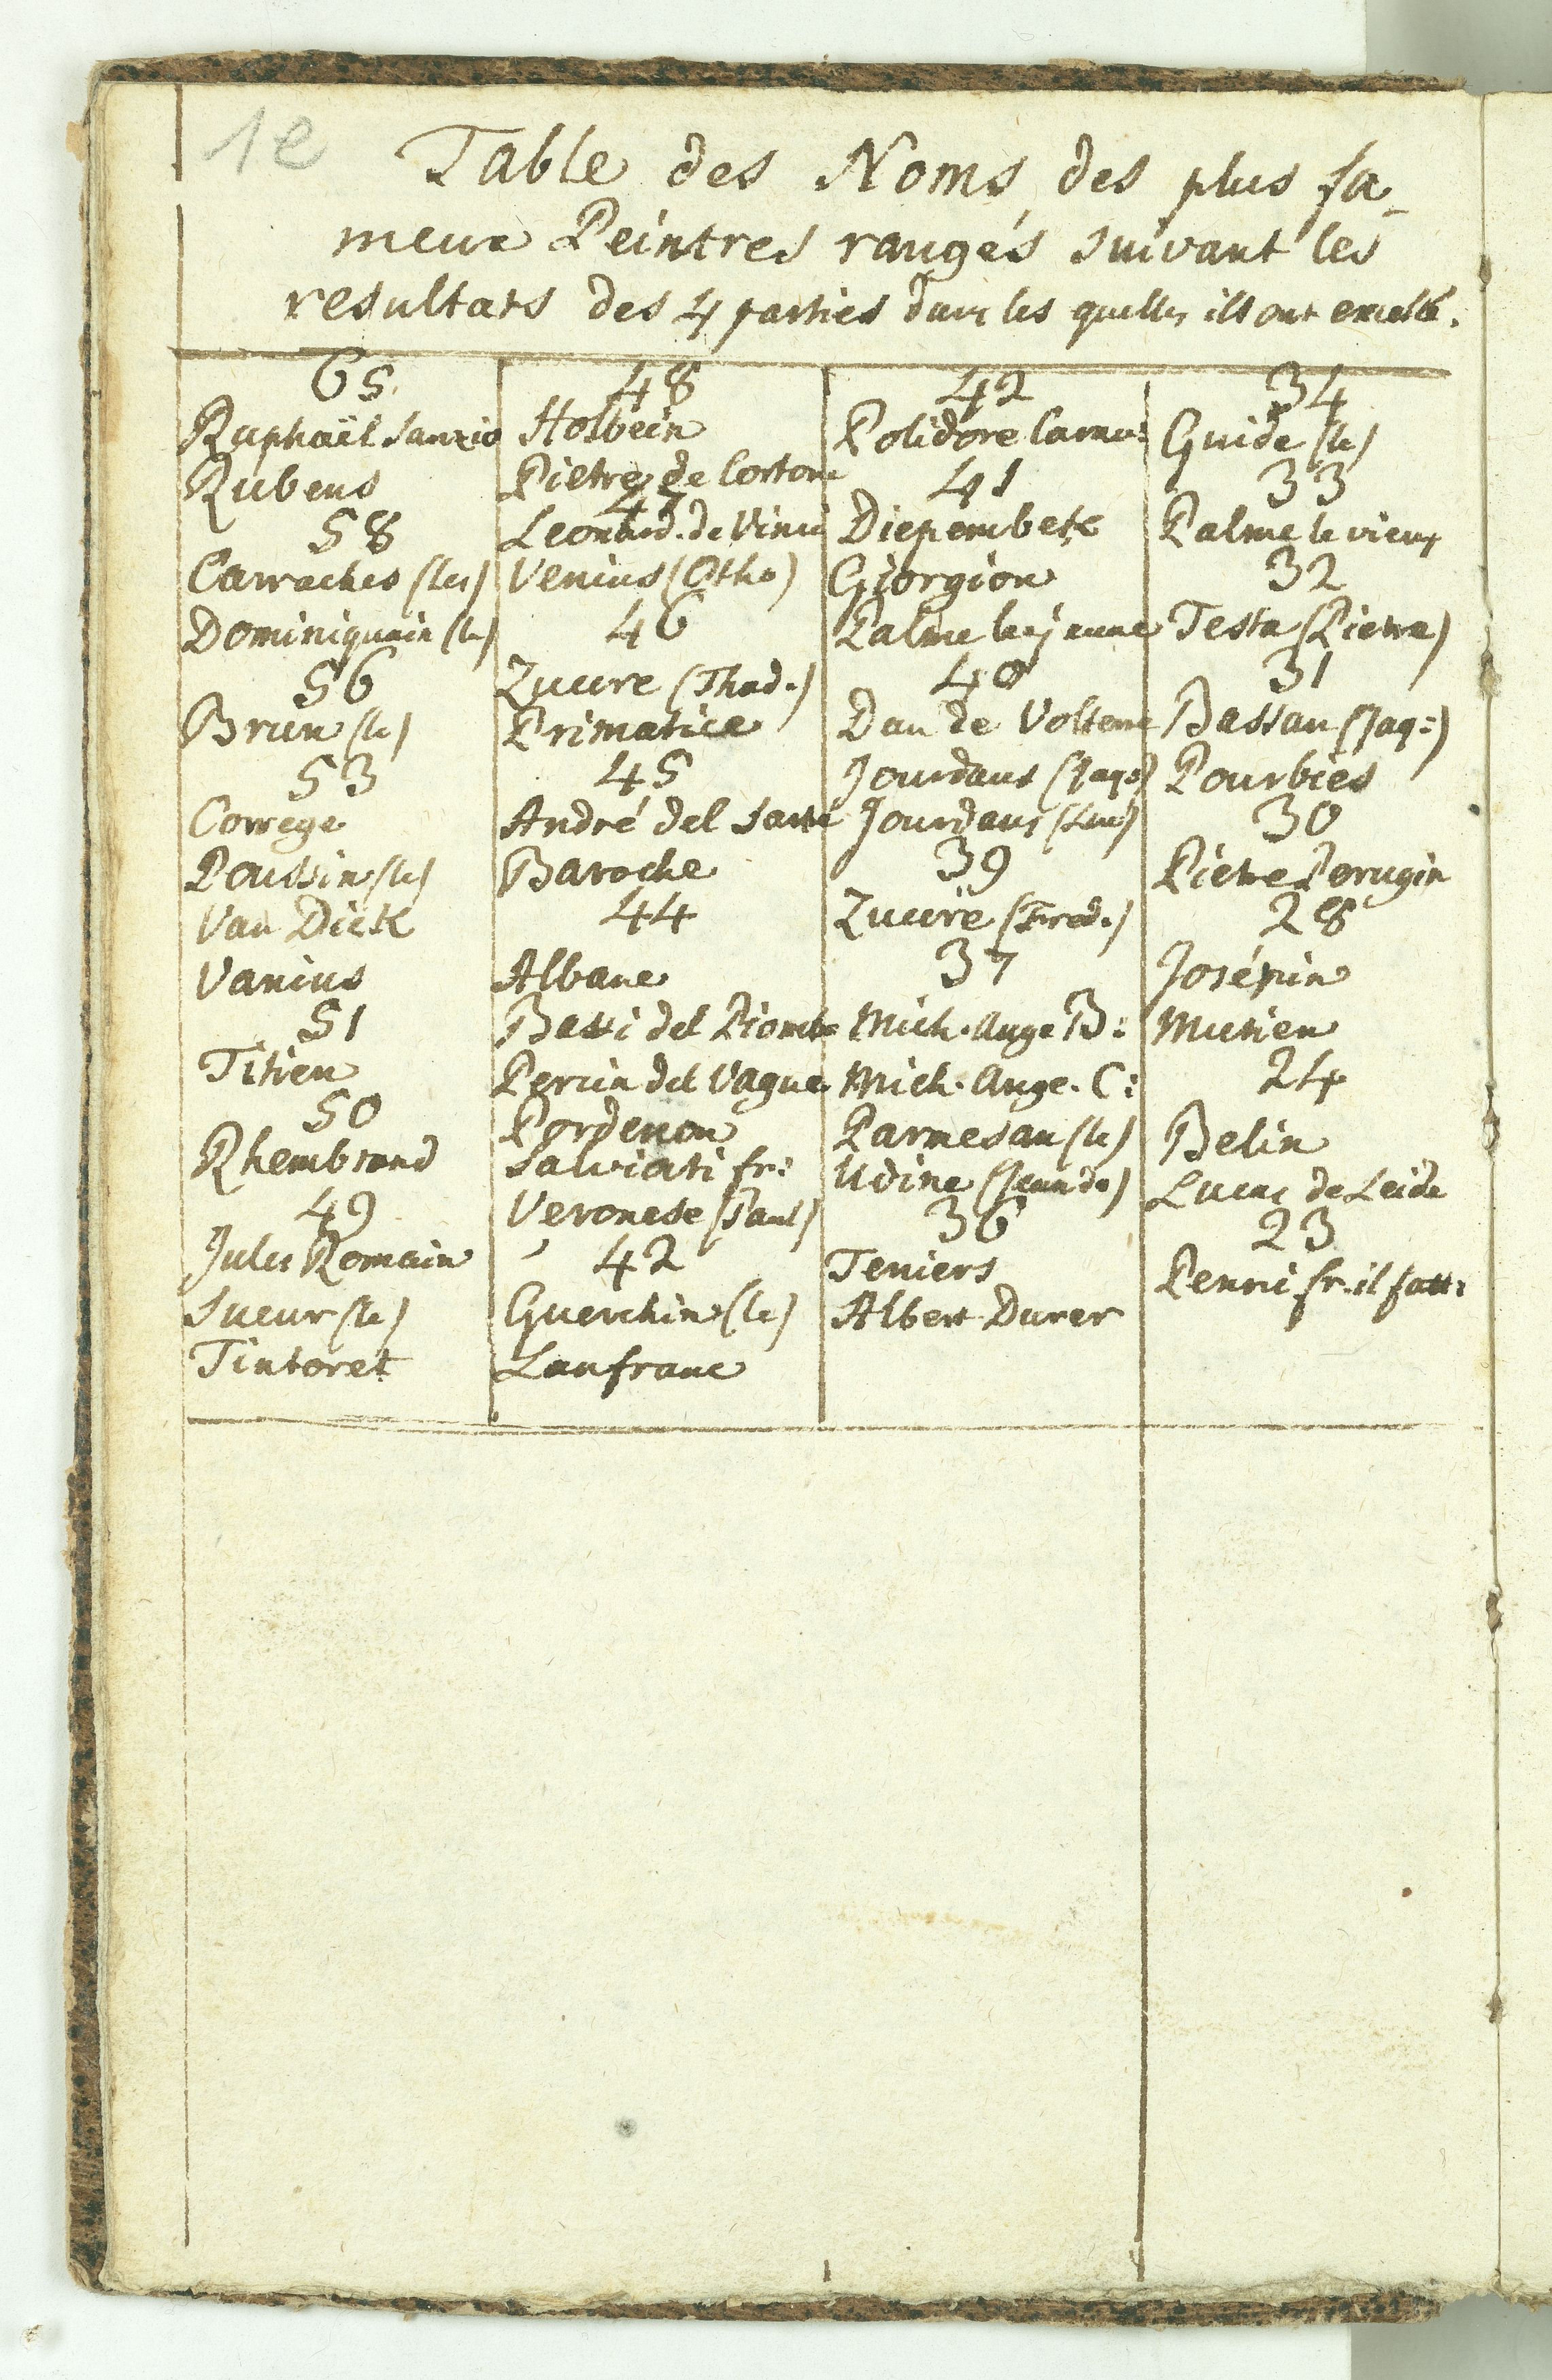 1e
Table des Noms des plus fa-
meux Peintres rangés suivant les
resultats des 4 parties dans les quelles ils ont excellé.
65
Raphaël Sanzio
Rubens
58
Carraches (les)
Dominiquain (le)
56
Brun (le)
53
Correge
Poussin (le)
Van Dick
Vanius
51
Titien
50
Rhembrand
49
Jules Romain
Sueur (le)
Tintoret
48
Holbein
Pietre de Cortone
47
Leonard. de Vinci
Venius (Otho)
46
Zucere (Thad.)
Primatice
45
André del Sarte
Baroche
44
Albane
Basti del Piombo
Perin del Vague
Pordenon
Salviati fr:
Veronese (Paul)
42
Guerchin (le)
Lanfranc
42
Polidore Carav:
41
Diepembeck
Giorgion
Palme le jeune
40
Dan de Volterre
Jourdans (Jaq:)
Jourdans (Luc)
39
Zucere (Fred.)
37
Mich. Ange B:
Mich. Ange. C:
Parmesan (le)
Udine (Jean de)
36
Teniers
Albert Durer
34
Guide (le)
33
Palme le vieux
32
Testa (Pietre)
31
Bassan (Jaq:)
Pourbies
30
Pietre Perugin
28
Josépin
Mutien
24
Belin
Lucas de Leide
23
Penni fr. il fatt: